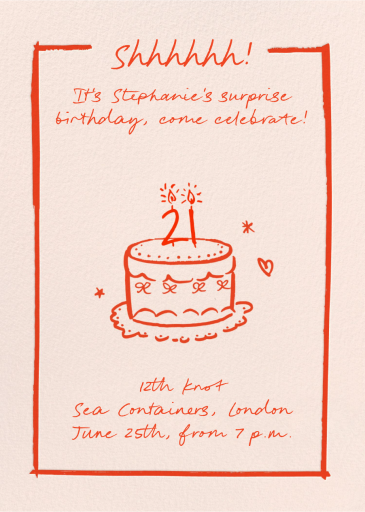 Shhhhhh!
It's Stephanie's surprise
birthday, come celebrate!
21
12th Knot
Sea Containers, London
June 25th, from 7 p.m.